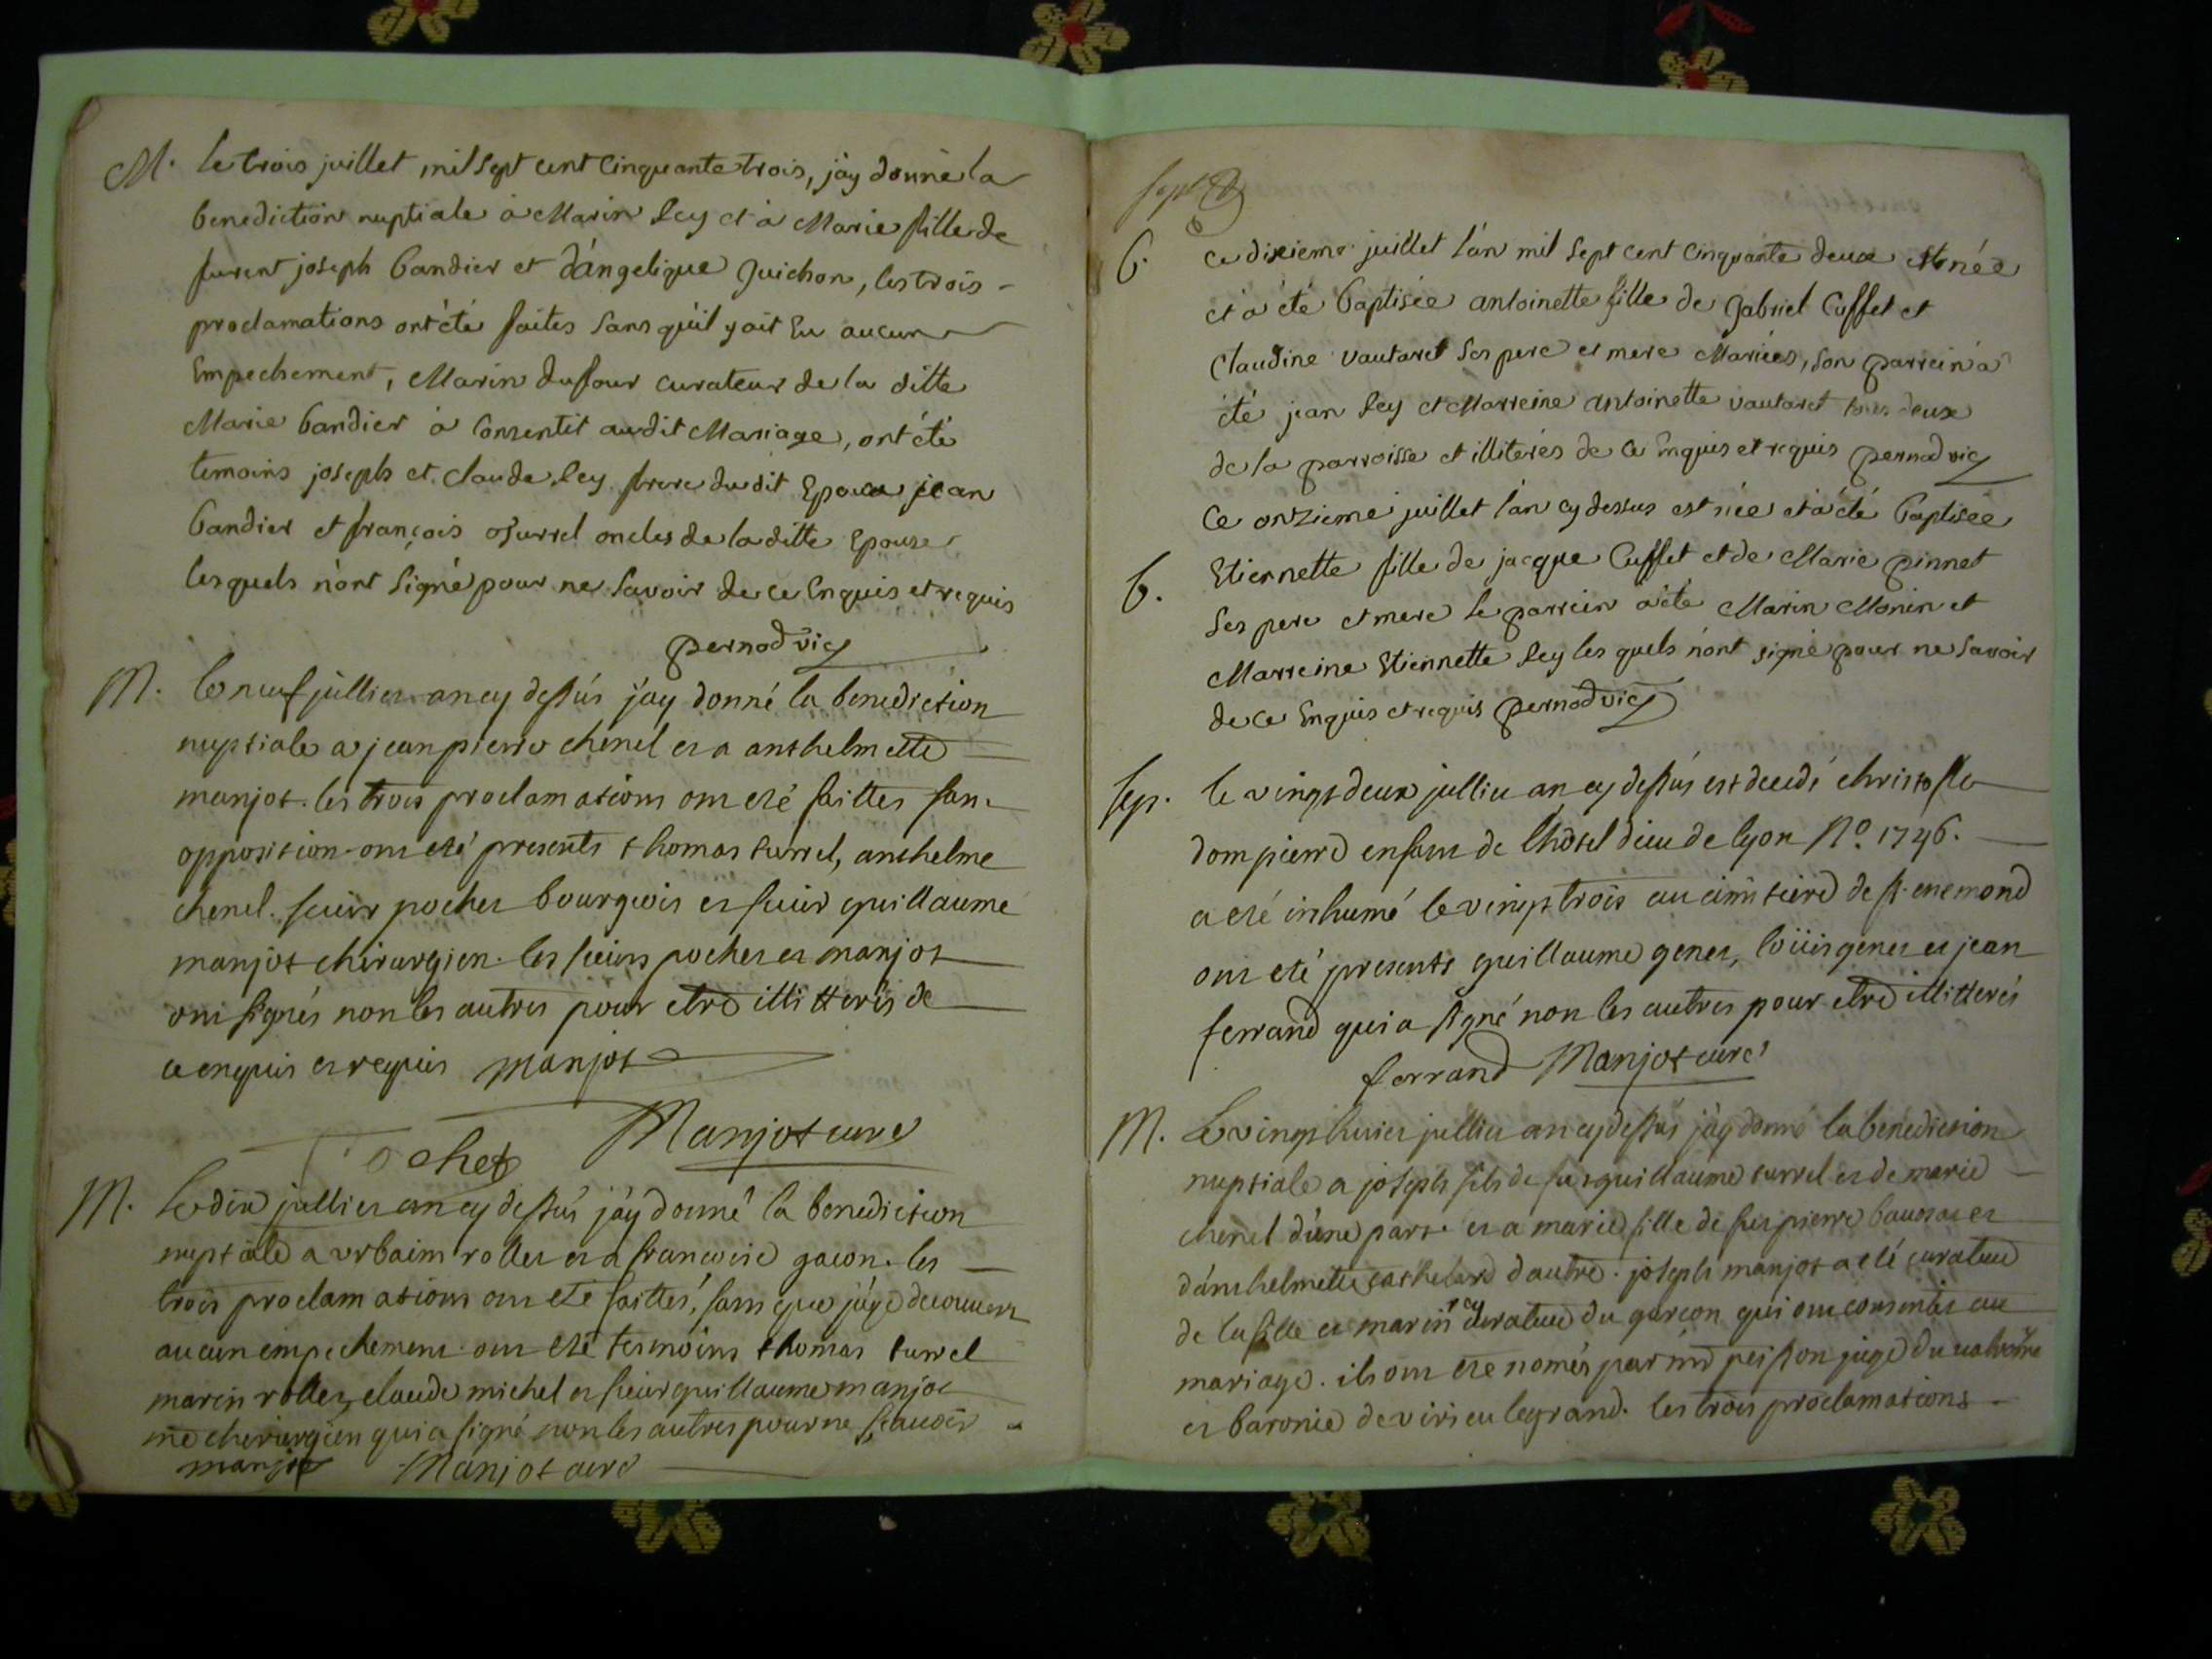 M. le trois juillet, mil sept cent cinquante trois, j'ay donné la
benediction nuptiale à Marin Rey et à Marie fille de
furent joseph bandier et d'angelique Guichon, les trois -
proclamations ont été faites sans qu'il y ait Eu aucun
Empechement, Marin dufour curateur de la ditte
Marie bandier a Consentit audit Mariage, ont été
temoins joseph et claude Rey frere dudit Epoux jean
bandier et françois Surrel oncles de la ditte Epouse
lesquels n'ont Signé pour ne Savoir de ce Enquis et requis
pernod vic
M. le neuf jullier an cy dessus j'ay donné la benediction
nuptiale a jean pierre chenel et a anthelmette
manjot. les trois proclamations ont eté faittes sans
opposition ont eté presents thomas surrel, anthelme
chenel. sieur pochet bourgeois et sieur guillaume
manjot chirurgien. les sieurs pochet et manjot
ont signés non les autres pour etre illitterés de
ce enquis et requis manjot
pochet Manjot curé
M. Le dix jullier an cy dessus j'ay donné la benediction
nuptiale a urbaim rollet et a francoise gacon. les
trois proclamations ont eté faittes, sans que j'aye decouvert
aucun empechement. ont eté tesmoins thomas surrel
marin rollet, claude michel et sieur guillaume manjot
me chirurgien qui a signé non les autres pour ne scavoir
manjot Manjot curé
sept
b. ce dixieme juillet l'an mil sept cent cinquante deux est née
et a été baptisée antoinette fille de Gabriel Cuffet et
Claudine vautaret ses pere et mere Mariées, son parrein a
été jean Rey et Marreine antoinette vautaret tous deux
de la parroisse et illiterés de ce Enquis et requis pernod vic
Ce onzieme juillet l'an cy dessus est née et a été baptisée
b. Etiennette fille de jacque Cuffet et de Marie pinnet
Ses pere et mere le parrein a été Marin Monin et
Marreine Etiennette Rey les quels n'ont signé pour ne Savoir
de ce Enquis et requis pernod vic
sep. le vingt deux jullier an cy dessus est decedé christofle
dompierre enfant de lhôtel dieu de lyon No. 1746.
a eté inhumé le vingt trois au cimitiere de st. enemond
ont eté presents guillaume genet, loüis genet et jean
ferrand qui a signé non les autres pour etre illitterés
ferrand Manjot curé
M. Le vingt huict jullier an cy dessus j'ay donné la benediction
nuptiale a joseph fils de fut guillaume surrel et de marie
chenel d'une part et a marie fille de fut pierre et
d'anthelmette d'autre. joseph manjot a eté curateur
de la fille et marin rey curateur du garcon qui ont consentis au
mariage. ils ont eté només par mr peisson juge du valromé
et baronie de virieu le grand. les trois proclamations